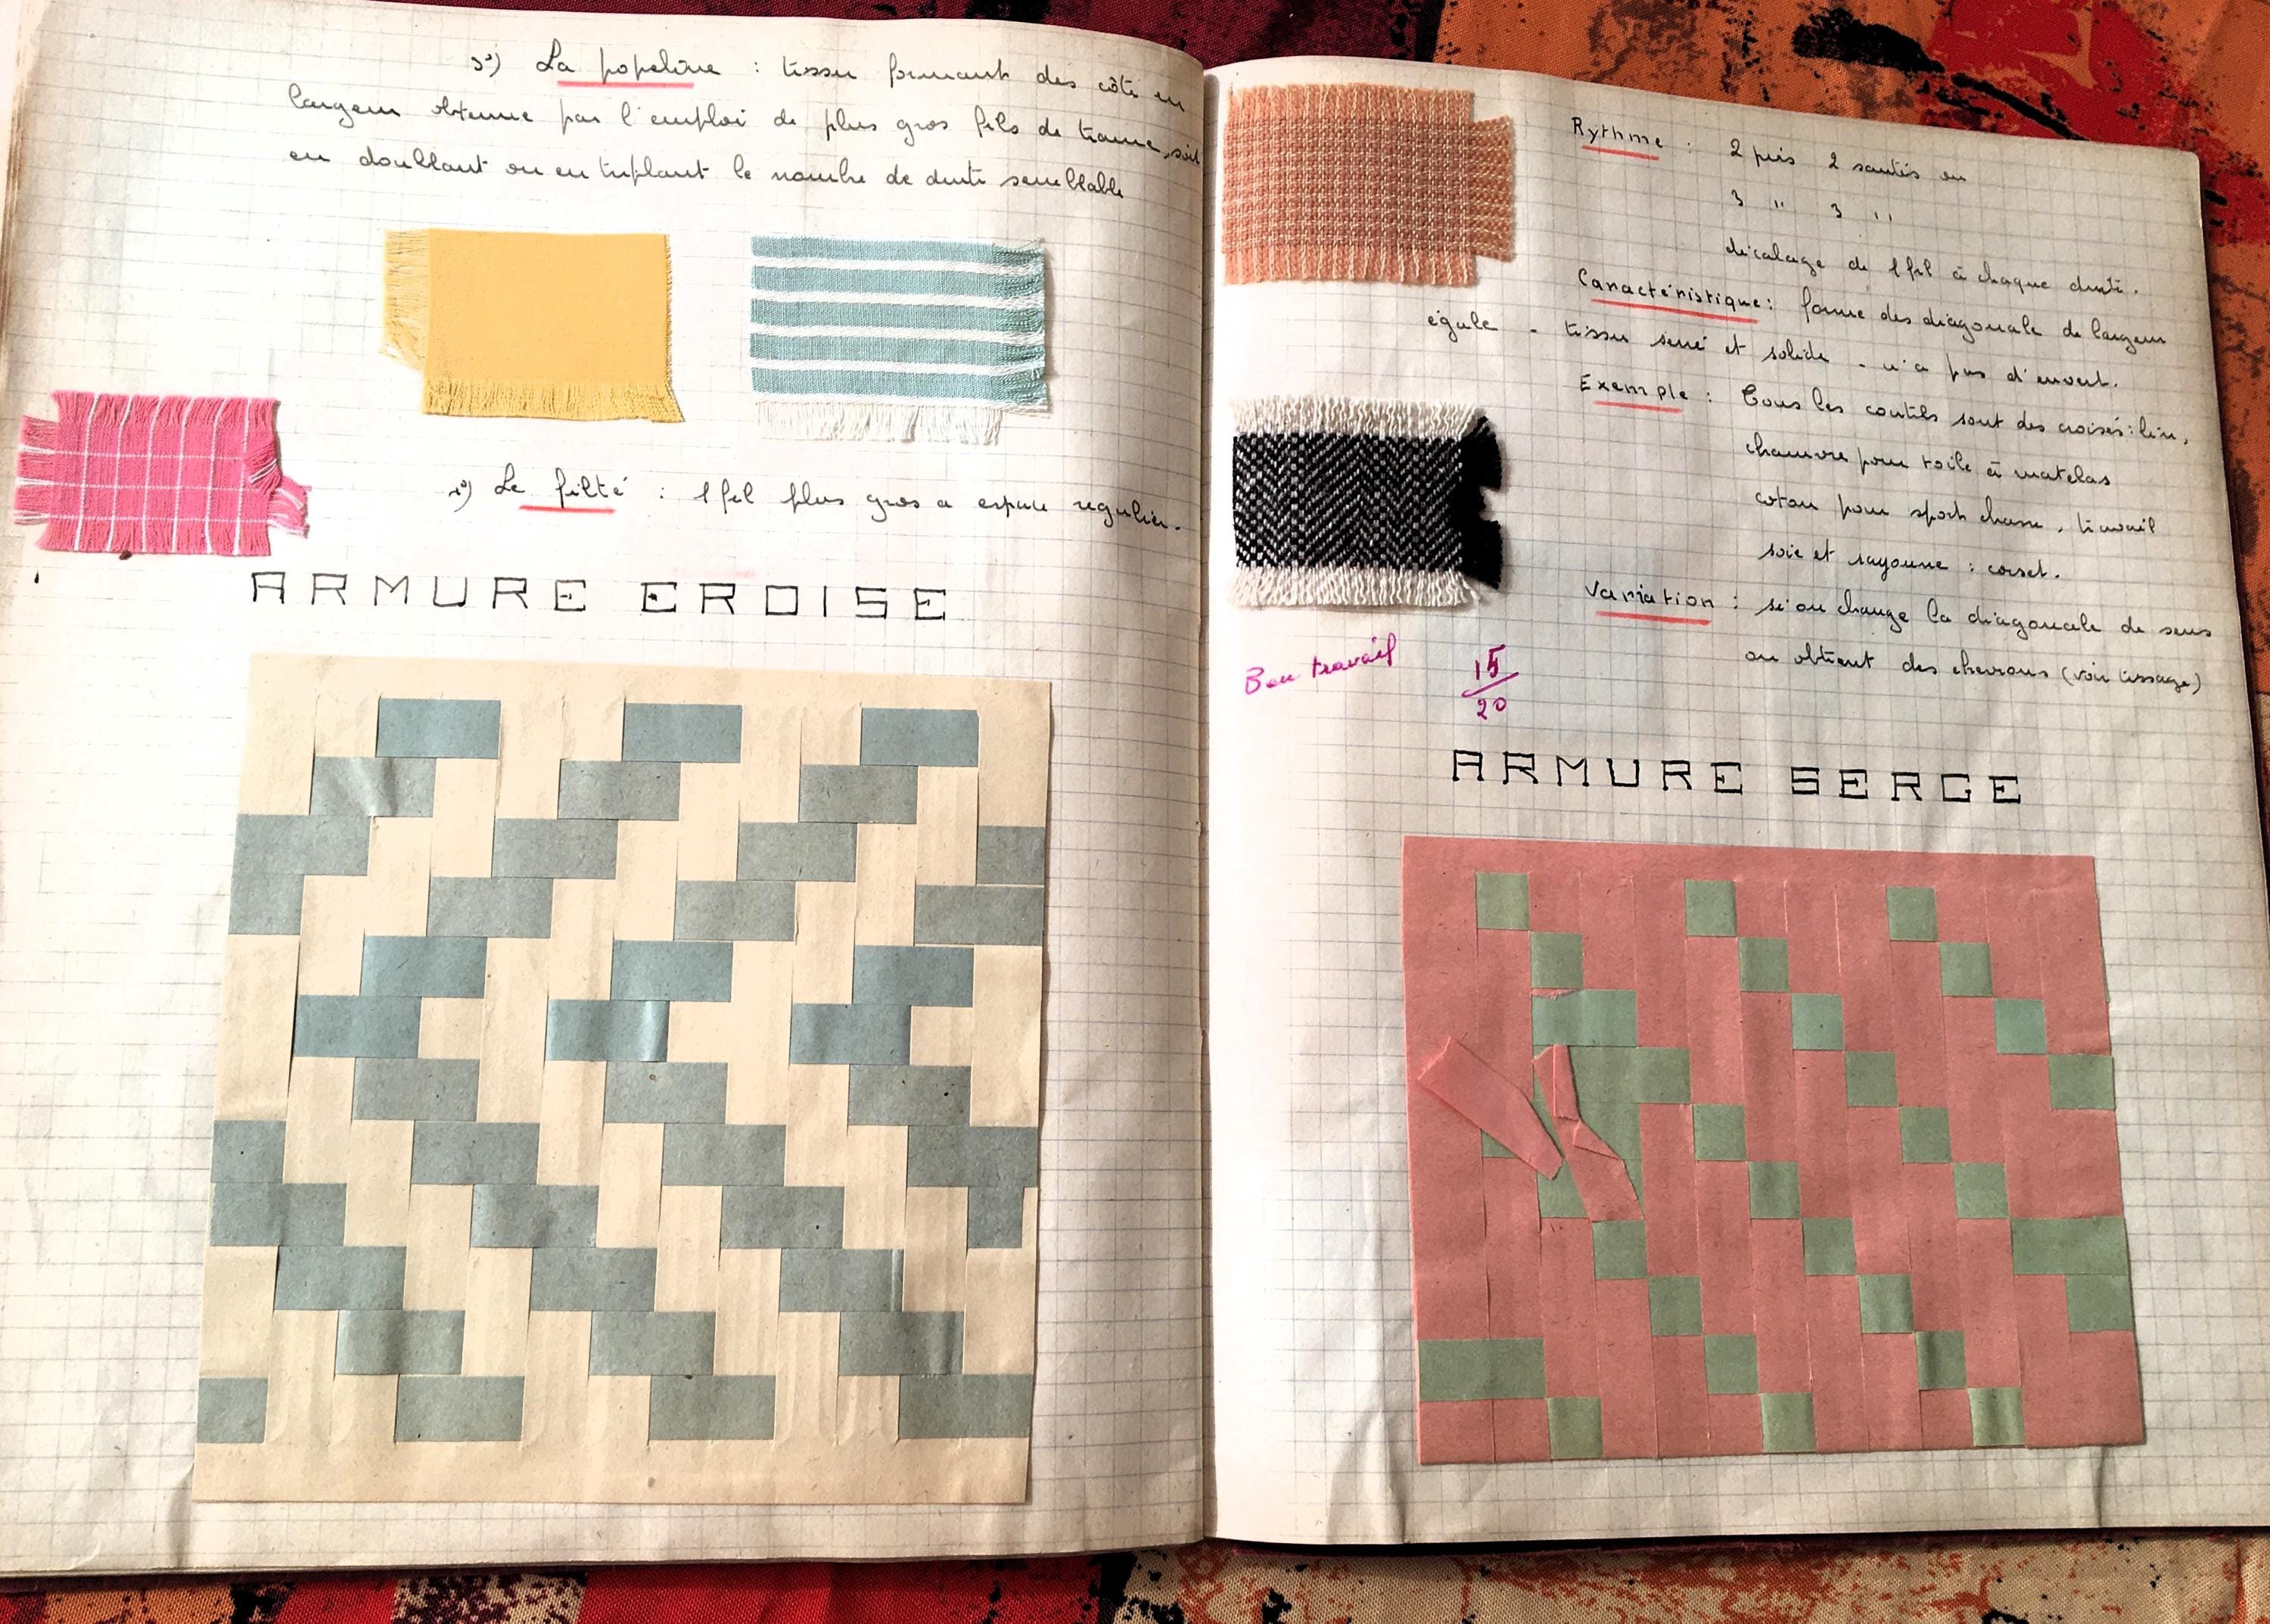 3°) La popeline : tissu formant des côte en
largeur obtenue par l'emploi de plus gros fils de trame, soit
en doublant ou en triplant le nombre de duite semblable
4°) Le filté : 1 fil plus gros a espace regulier.
ARMURE CROISE
Rythme : 2 pris 2 sautés ou
3 " 3 "
décalage de 1 fil à chaque duite.
Caractéristique : forme des diagonale de largeur
égale - tissu serré et solide - n'a pas d'envert.
Exemple : Tous les coutils sont des croisés : lin,
chanvre pour toile à matelas
coton pour sport chasse, travail
soie et rayonne : corset.
Variation : si on change la diagonale de sens
on obtient des chevrons (voir tissage)
Bon travail 15/20
ARMURE SERGE